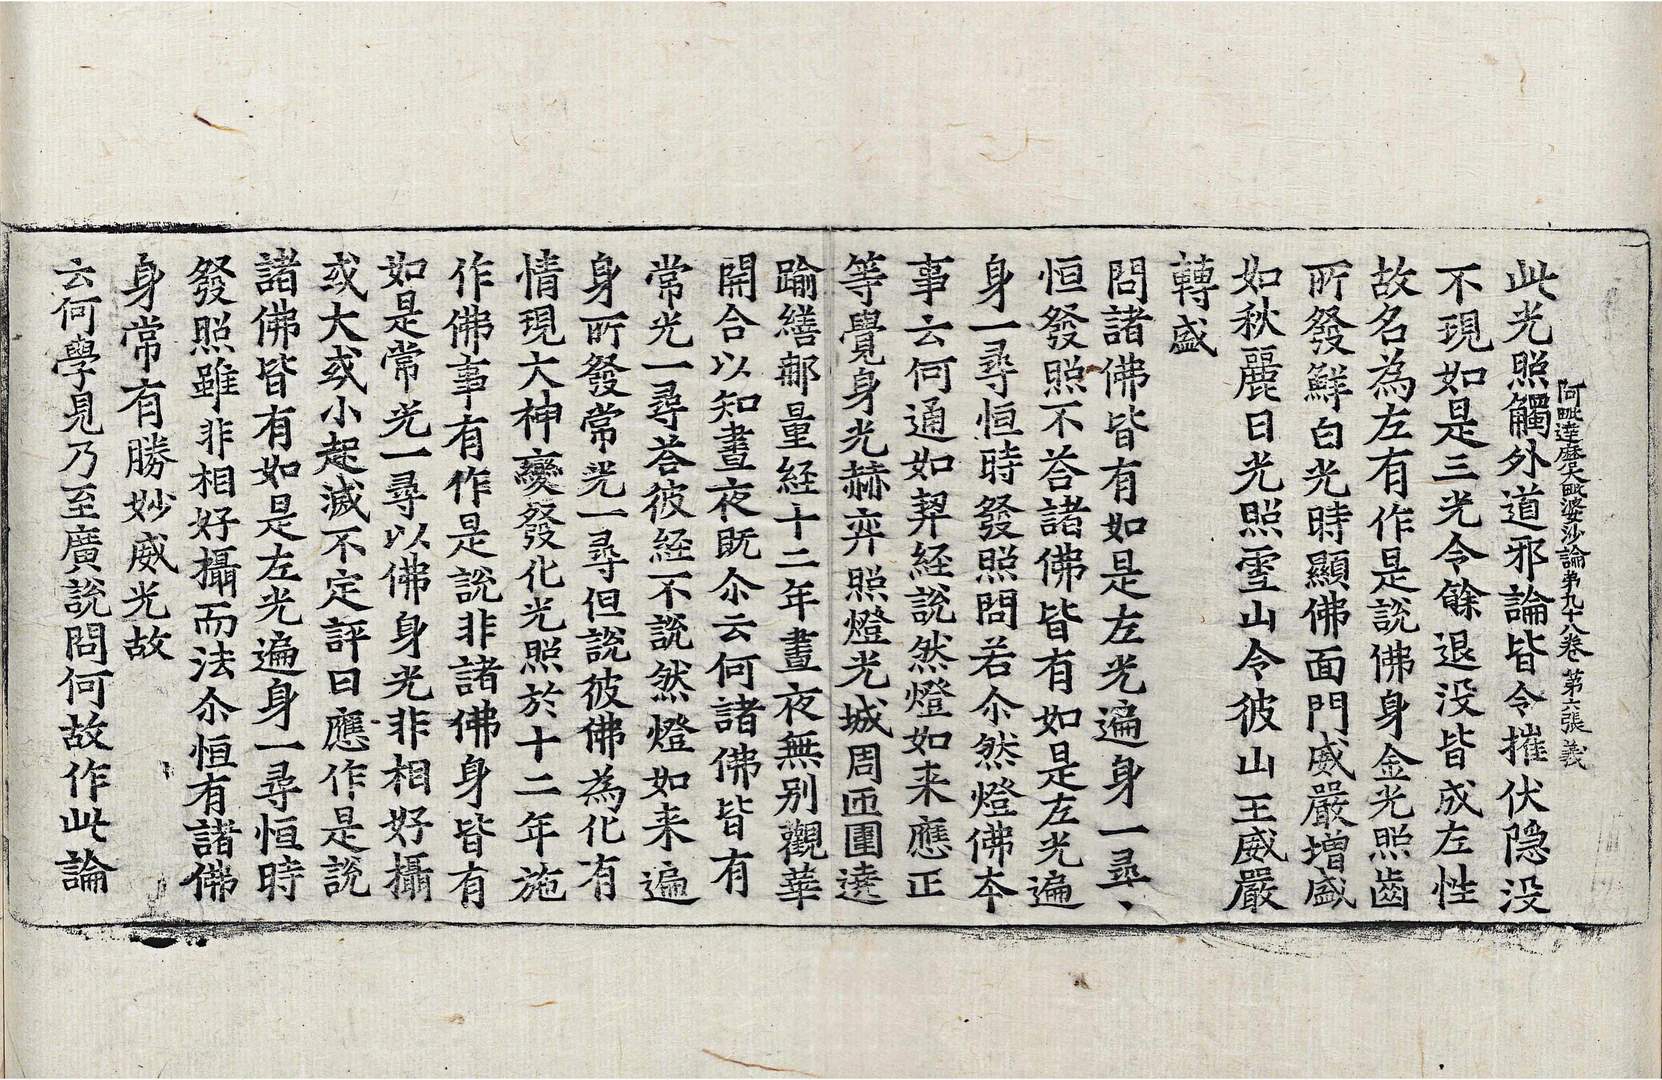 阿毗達磨大毗婆沙論第九十八卷 第六張 義
此光照觸外道邪論皆令摧伏隐没
不現如是三光令餘退没皆成左性
故名為左有作是說佛身金光照齒
所發鮮白光時顯佛面門威嚴增盛
如秋麗日光照雪山令彼山王威嚴
轉盛
問諸佛皆有如是左光遍身一尋、
恒發照不荅諸佛皆有如是左光遍
身一尋恒時發照問若尒然燈佛夲
事云何通如契經說然燈如来應正
等覺身光赫弈照燈光城周匝圍遶
踰繕那量経十二年晝夜無別觀華
開合以知晝夜既尒云何諸佛皆有
常光一尋荅彼経不說然燈如来遍
身所發常光一尋但說彼佛為化有
情現大神變發化光照於十二年施
作佛事有作是說非諸佛身皆有
如是常光一尋以佛身光非相好攝
或大或小起滅不定評曰應作是說
諸佛皆有如是左光遍身一尋恒時
發照雖非相好攝而法尒恒有諸佛
身常有勝妙威光故
云何學見乃至廣說問何故作此論